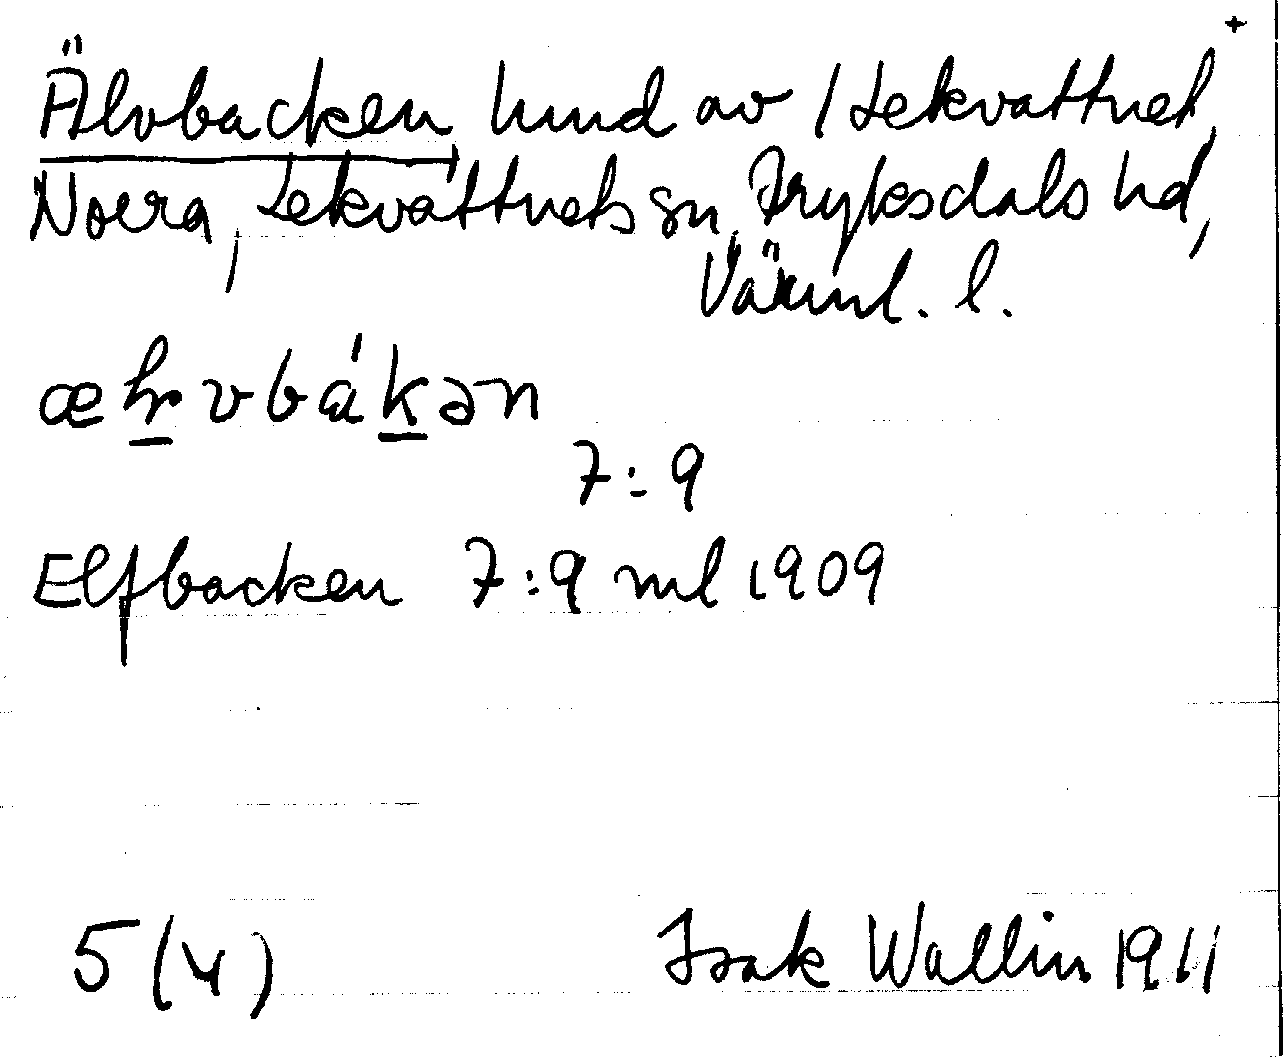 +
Älvbacken, hmd av 1 Lekvattnet,
Norra, Lekvattnets sn, Fryksdals hd,
Värml. l.
7:9
Elfbacken 7:9 ml 1909
5(4) Isak Wallin 1911